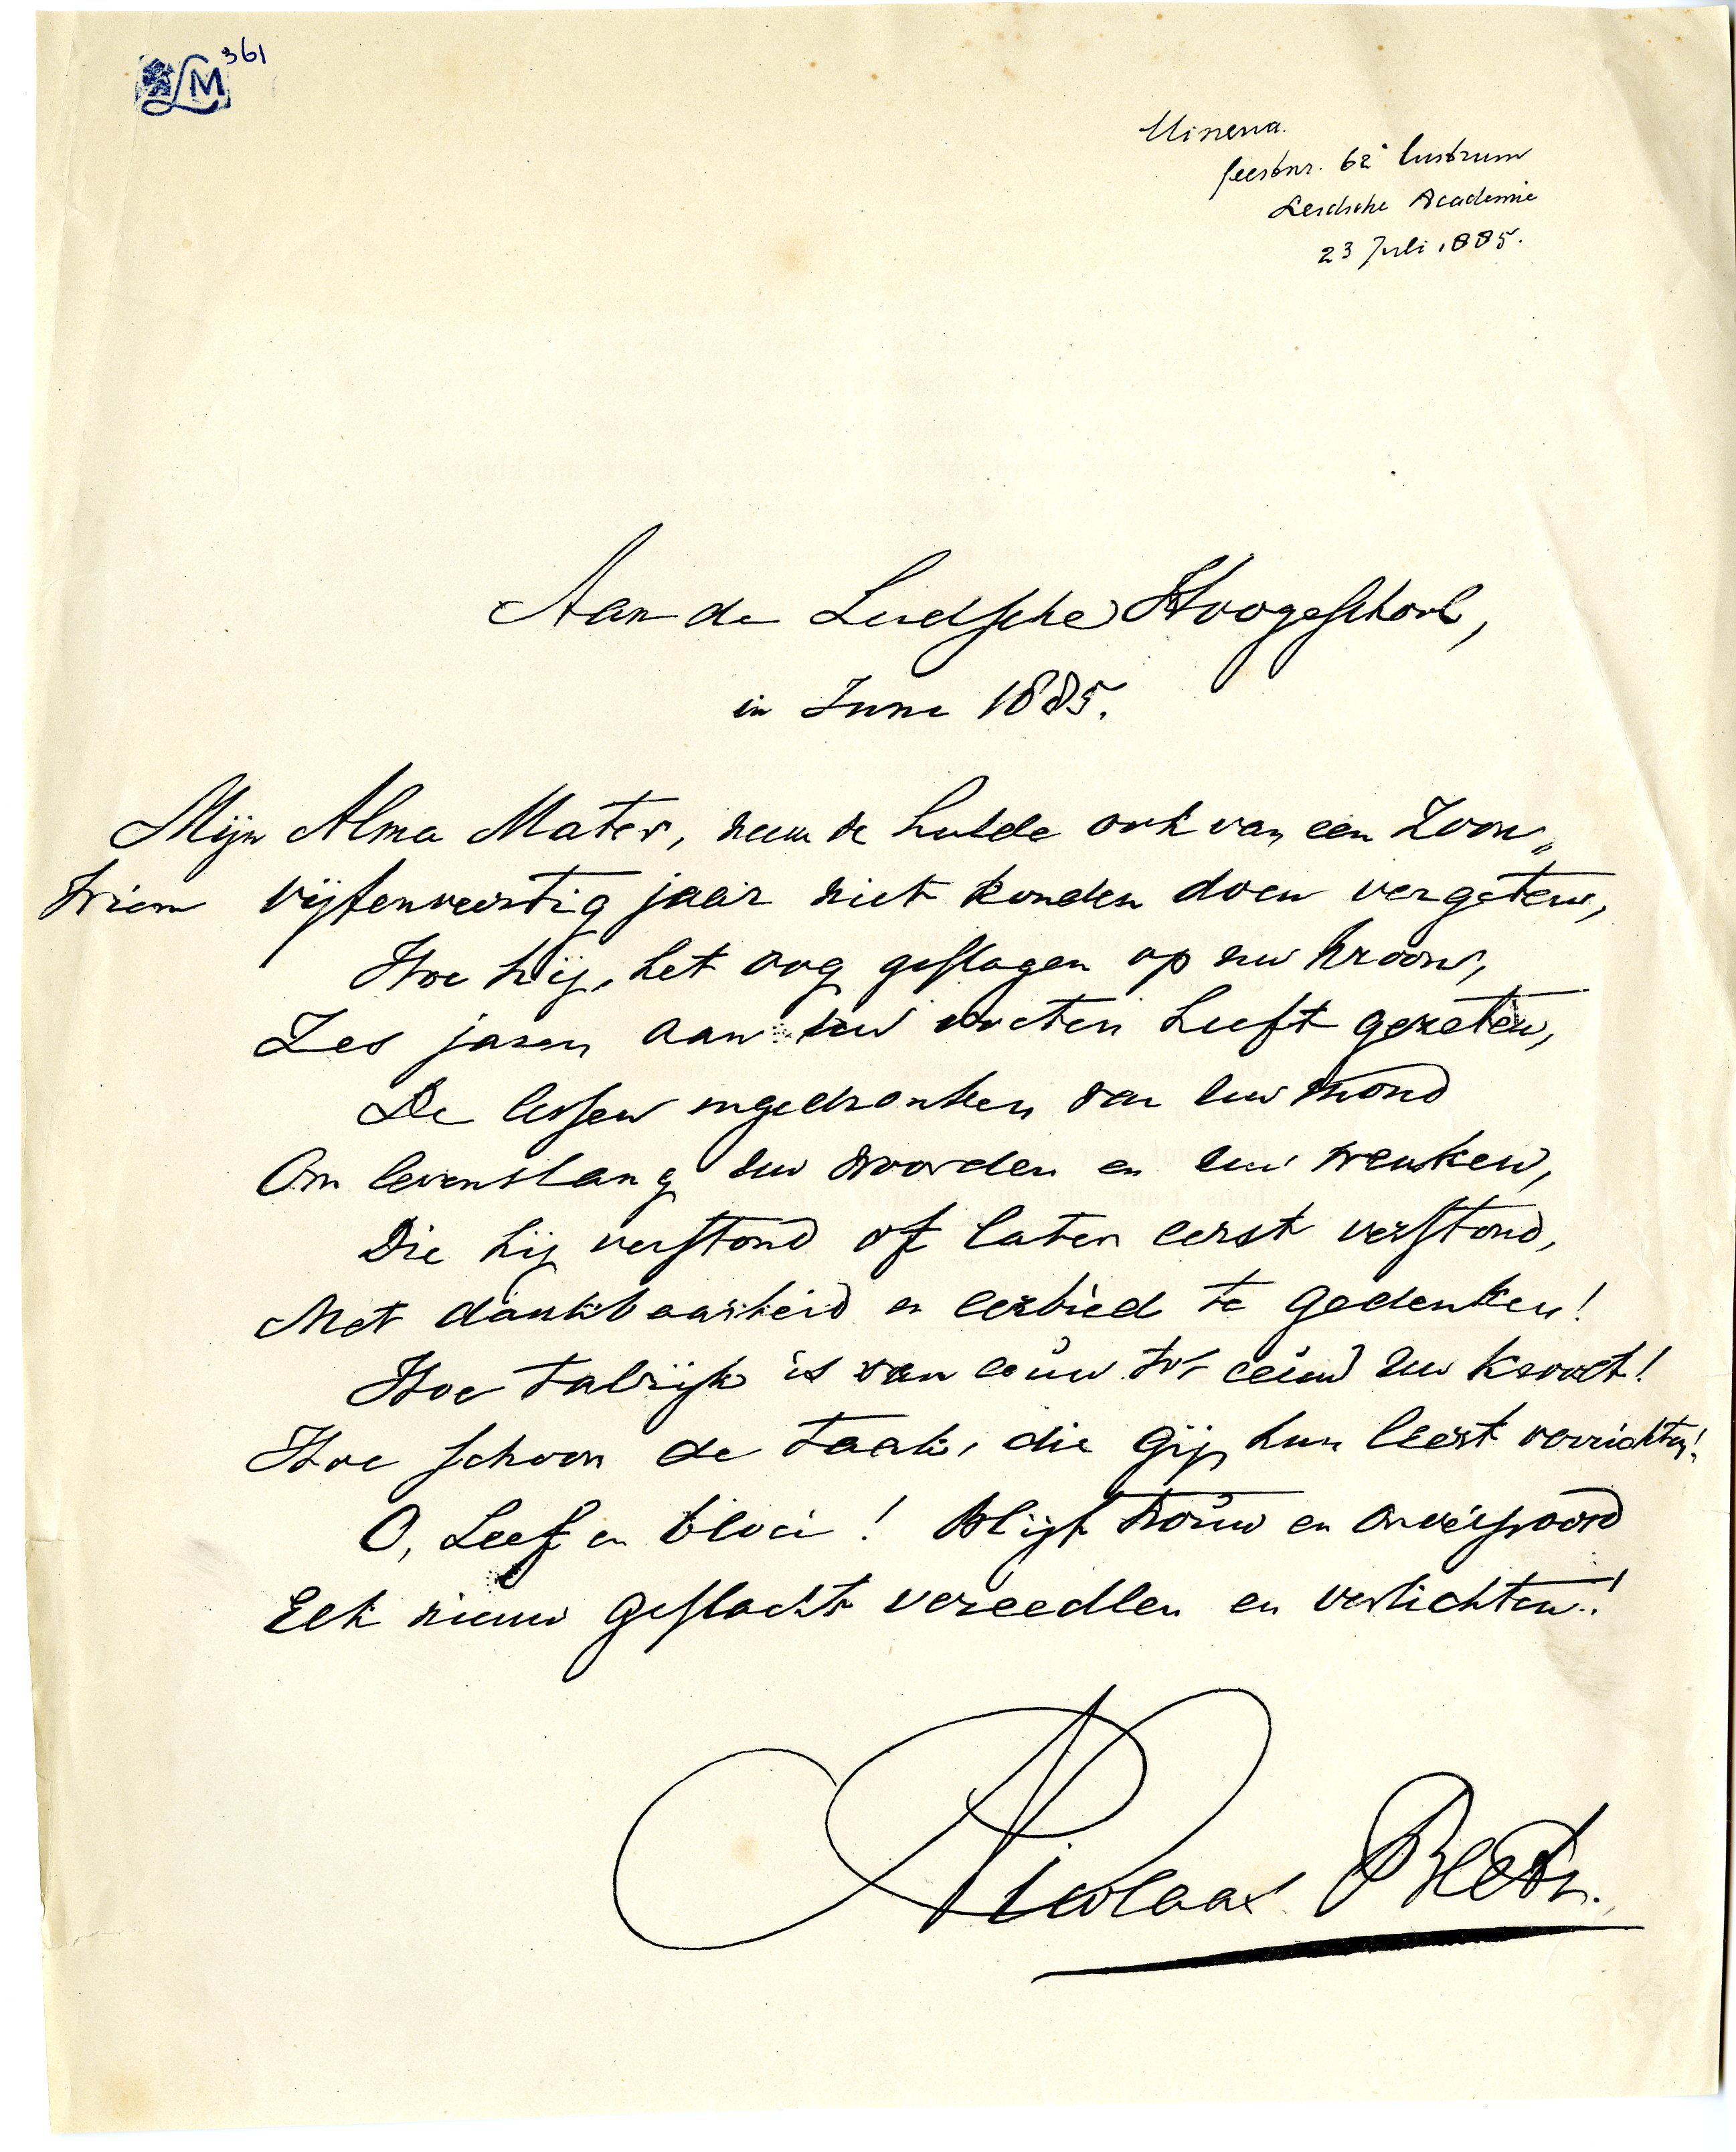 LM 361
Minerva.
feestnr. 62e lustrum
Leidsche Academie
23 Juli 1885.
Aan de Leidsche Hoogeschool,
in Juni 1885.
Mijn Alma Mater, neem de hulde ook van een Zoon,
Wien vijfenveertig jaar niet konden doen vergeten,
Hoe hij, het oog geslagen op uw kroon,
Zes jaren aan uw voeten heeft gezeten,
De lessen ingedronken van uw mond
Om levenslang uw woorden en uw wenken,
Die hij verstond of later eerst verstond,
Met dankbaarheid en eerbied te gedenken!
Hoe talrijk is van eeuw tot eeuw uw kroost!
Hoe schoon de taak, die gij hun leert verrichten!
O, Leef en bloei! Blijf trouw en onverpoosd
Elk nieuw geslacht vereedlen en verlichten!
Nicolaas Beets.